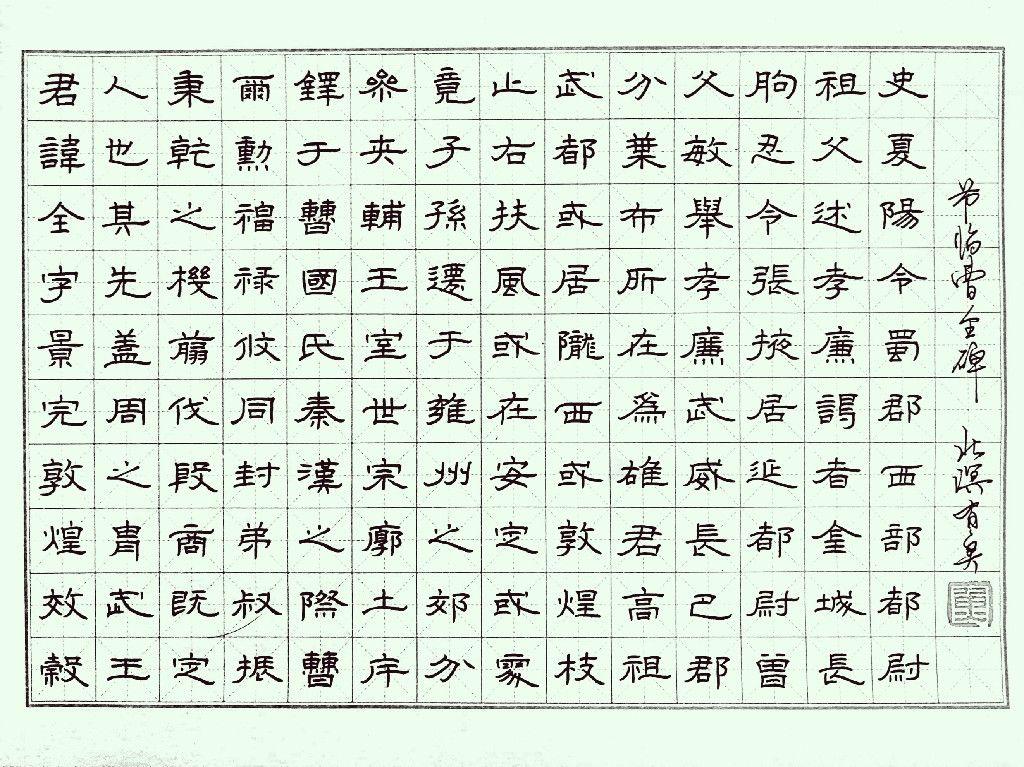 君諱全字景完敦煌效穀
人世其先蓋周之胄武王
秉乾之機翦伐殷商既定
爾勳福禄攸同封弟叔振
鐸于曹國氏秦漢之際曹
參夾輔王室世宗廓土斥
竟子孫遷于雍州之郊分
止右扶風或在安定或處
武都或居隴西或敦煌枝
分葉布所在為雄君高祖
父敏舉孝廉武威長巴郡
朐忍令張掖居延都尉曾
祖父述孝廉謁者金城長
史夏陽令蜀郡西部都尉
节临曹全碑 北溟有